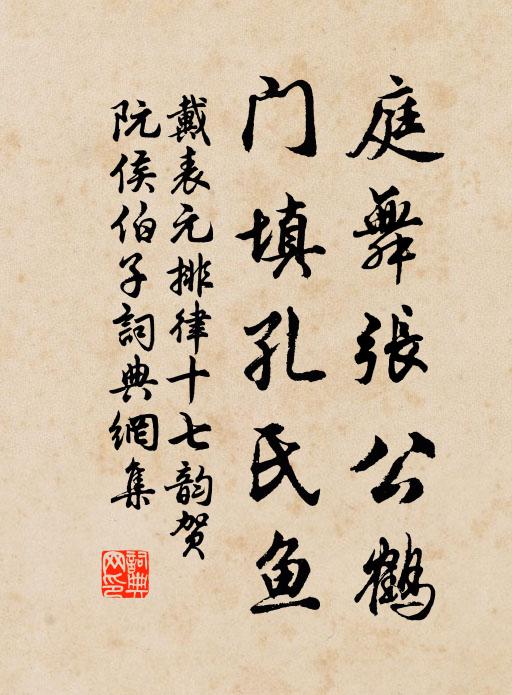 庭舞張公鶴
门填孔氏鱼
戴表元排律十七韵贺
阮侯伯子詞典網集
詞典网印